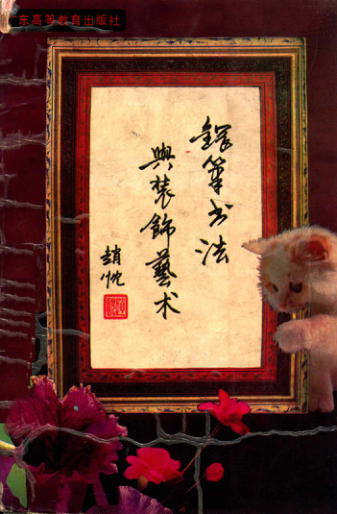 广东高等教育出版社
鋼筆书法
與装飾藝术
趙忱